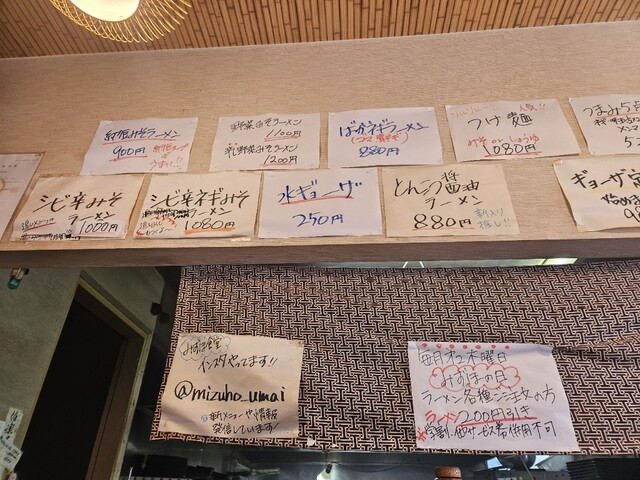 紀州みそラーメン
900円
うまい!!
野菜みそラーメン
1100円
辛し野菜みそラーメン
1200円
ばかネギラーメン
880円
人気!!
つけ麺
みそ or しょうゆ
1080円
つまみ5
シビ辛みそ
ラーメン
1000円
シビ辛ネギみそ
ラーメン
1080円
水ギョーザ
250円
とんこつ醤油
ラーメン
880円
推し!!
ギョーザ
みずほ食堂
インスタやってます!!
@mizuho_umai
新メニューや情報
発信しています!
毎月第2木曜日
みずほの日
ラーメン各種ご注文の方
ラーメン200円引き
※学割、他サービス券併用不可